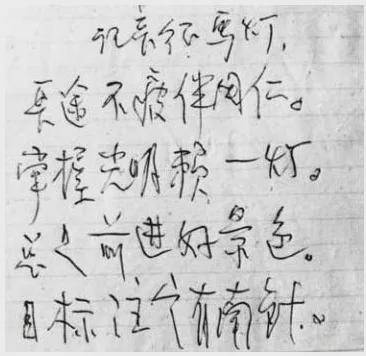 记长征马灯.
長途不疲伴同仁。
掌握光明赖一灯。
总之前进好景色。
目标注定有南針.。